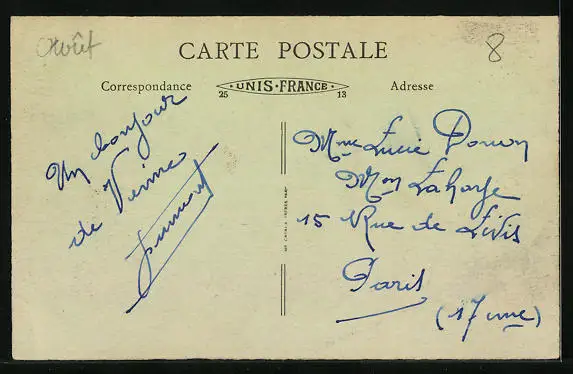 Août
8
CARTE POSTALE
Correspondance
UNIS-FRANCE
25
13
Adresse
Un bonjour
de Vienne
Mme Lucie
Mon Laforge
15 Rue de Lévis
Paris
(17 eme)